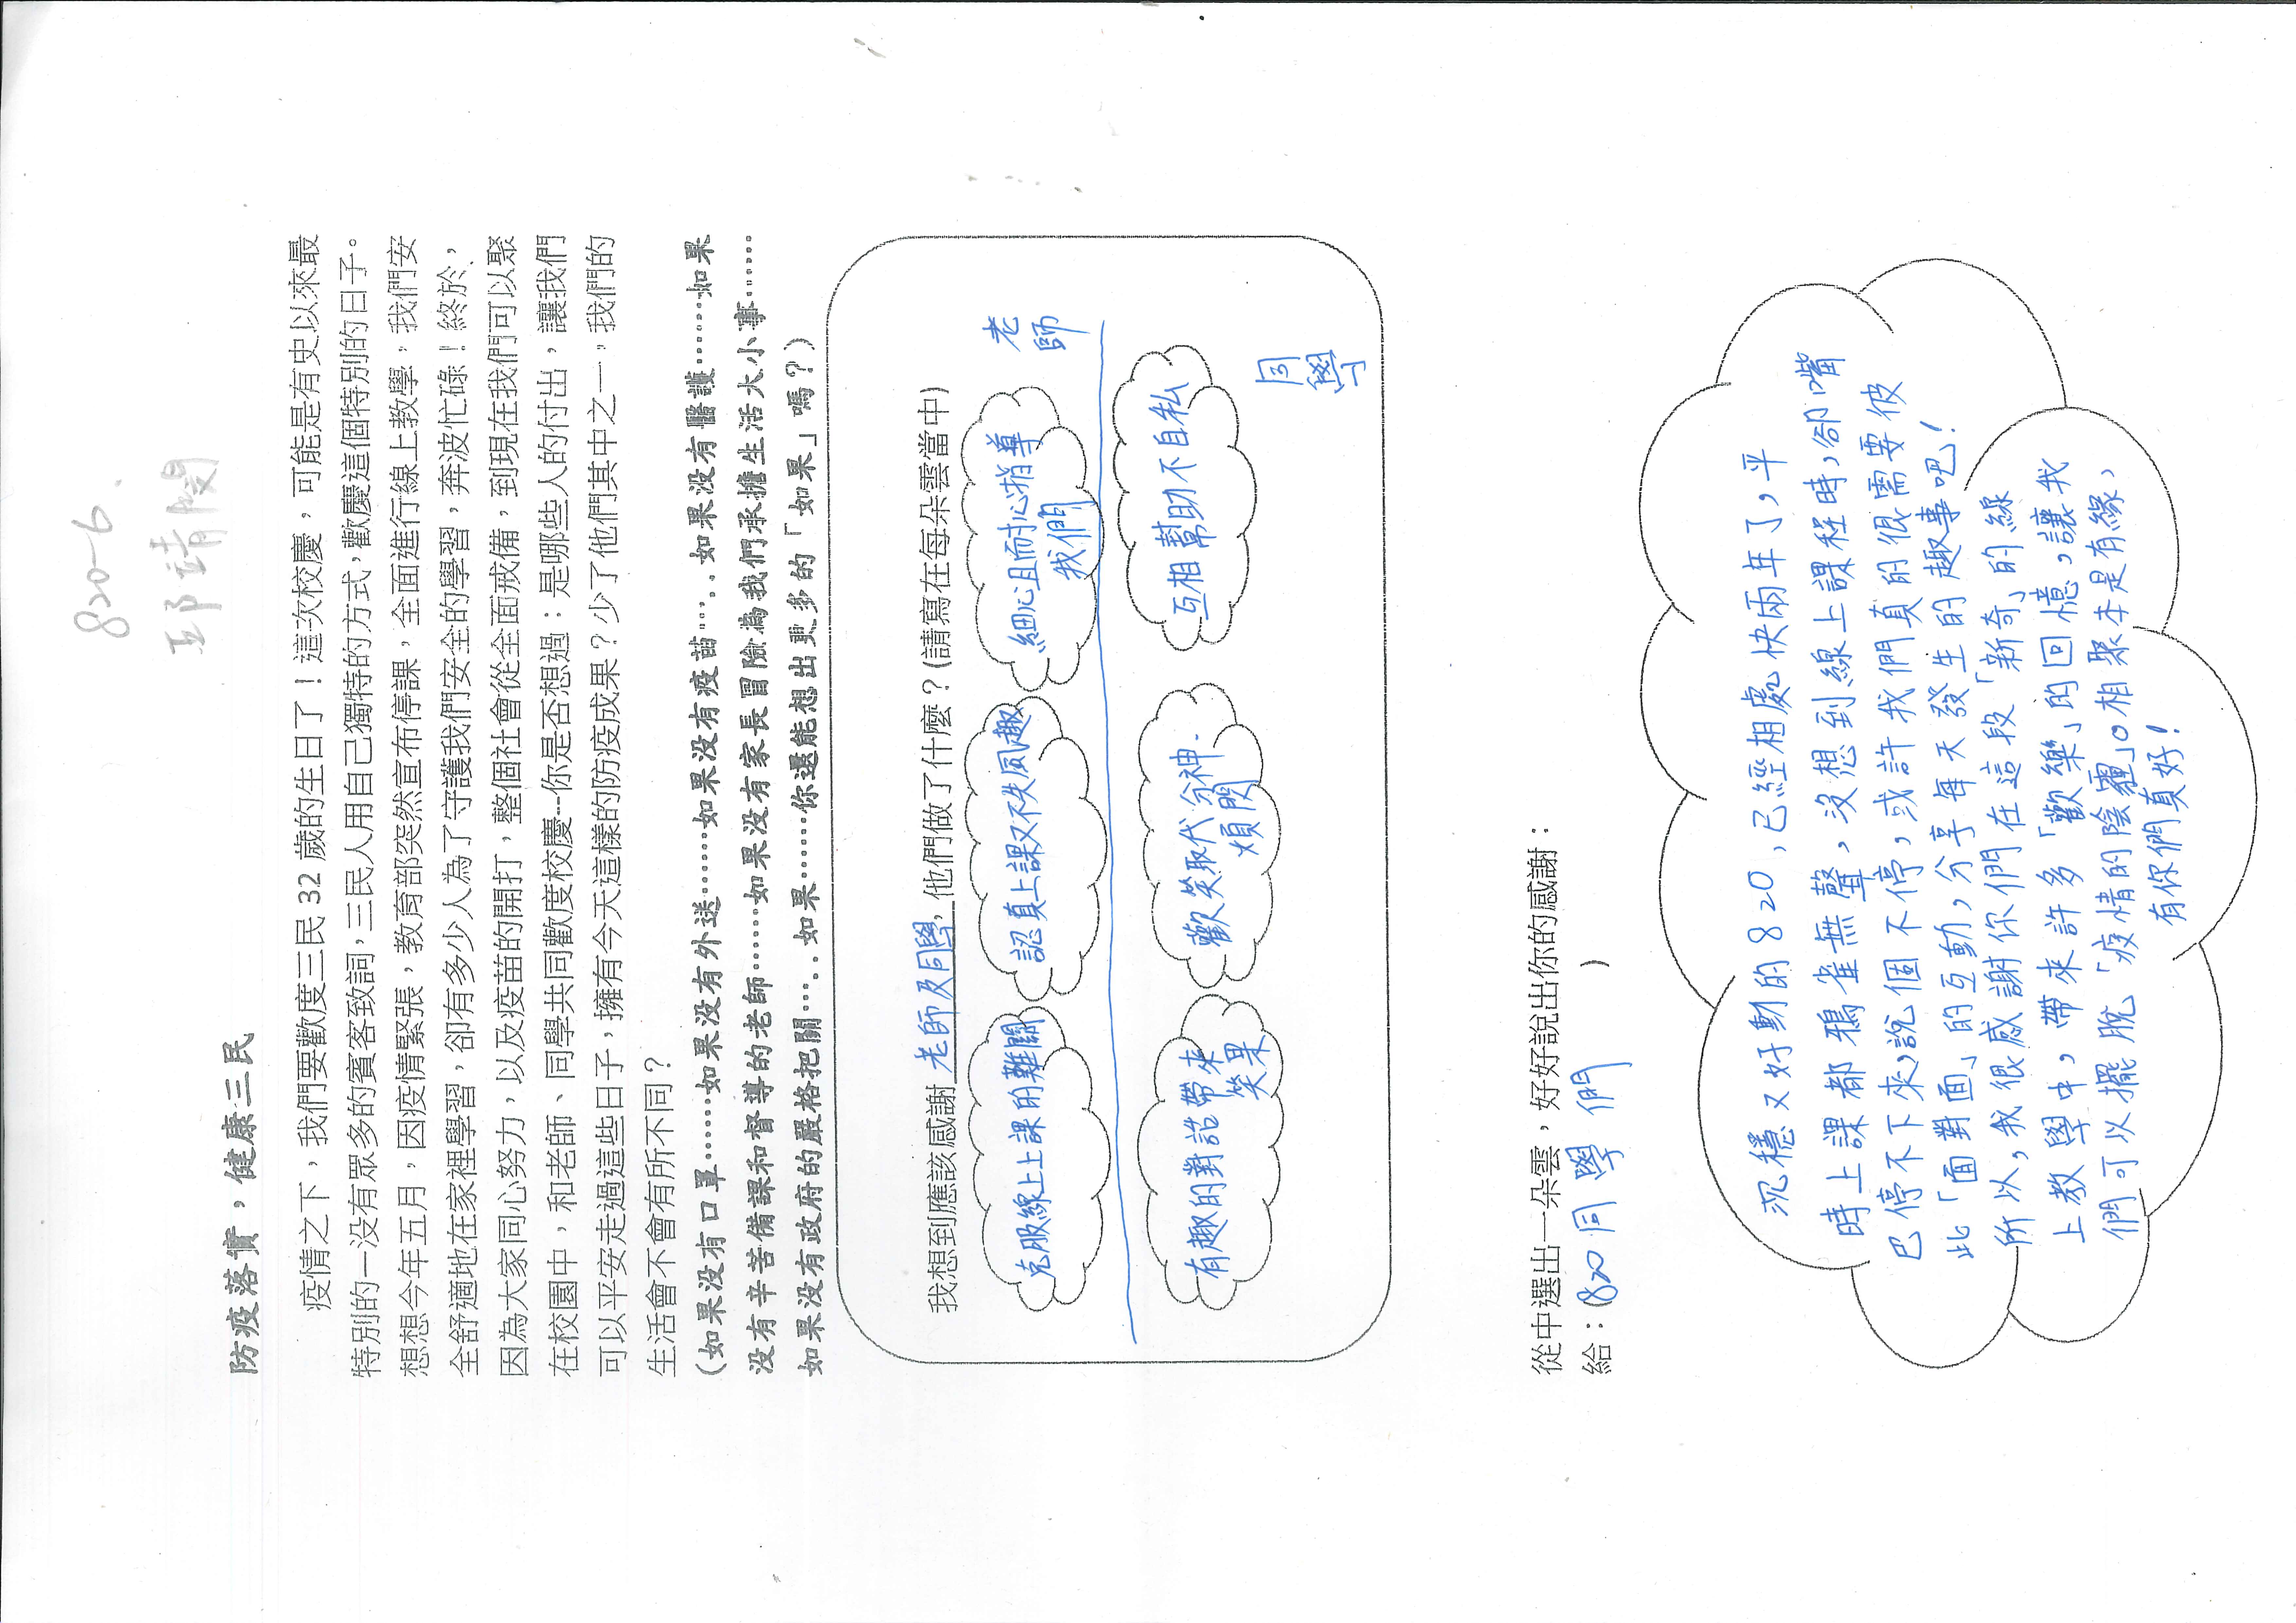 820-6
防疫落實，健康三民
疫情之下，我們要歡度三民 32 歲的生日了！這次校慶，可能是有史以來最
特別的一沒有眾多的賓客致詞，三民人用自己獨特的方式，歡慶這個特別的日子。
想想今年五月，因疫情緊張，教育部突然宣布停課，全面進行線上教學，我們安
全舒適地在家裡學習，卻有多少人為了守護我們安全的學習，奔波忙碌！終於，
因為大家同心努力，以及疫苗的開打，整個社會從全面戒備，到現在我們可以聚
在校園中，和老師、同學共同歡度校慶--你是否想過：是哪些人的付出，讓我們
可以平安走過這些日子，擁有今天這樣的防疫成果？少了他們其中之一，我們的
生活會不會有所不同？
(如果沒有口罩……如果沒有外送……如果沒有疫苗…..如果沒有醫護……如果
沒有辛苦備課和督導的老師……如果沒有家長冒險為我們承擔生活大小事……
如果沒有政府的嚴格把關…..如果……你還能想出更多的「如果」嗎？)
我想到應該感謝 老師及同學，他們做了什麼？(請寫在每朵雲當中)
克服線上上課的難關
認真上課又不失風趣
細心且耐心指導
我們
老師
有趣的對話帶來
笑果
歡笑取代分神、
煩悶
互相幫助不自私
同學
從中選出一朵雲，好好說出你的感謝：
給：(820同學們)
沉穩又好動的820，已經相處快兩年了，平
時上課都鴉雀無聲，沒想到線上課程時，卻嘴
巴停不下來，說個不停，或許我們真的很需要彼
此「面對面」的互動，分享每天發生的趣事吧！
所以，我很感謝你們在這段「新奇」的線
上教學中，帶來許多「歡樂」的回憶，讓我
們可以擺脫「疫情的陰霾」。相聚本是有緣，
有你們真好！